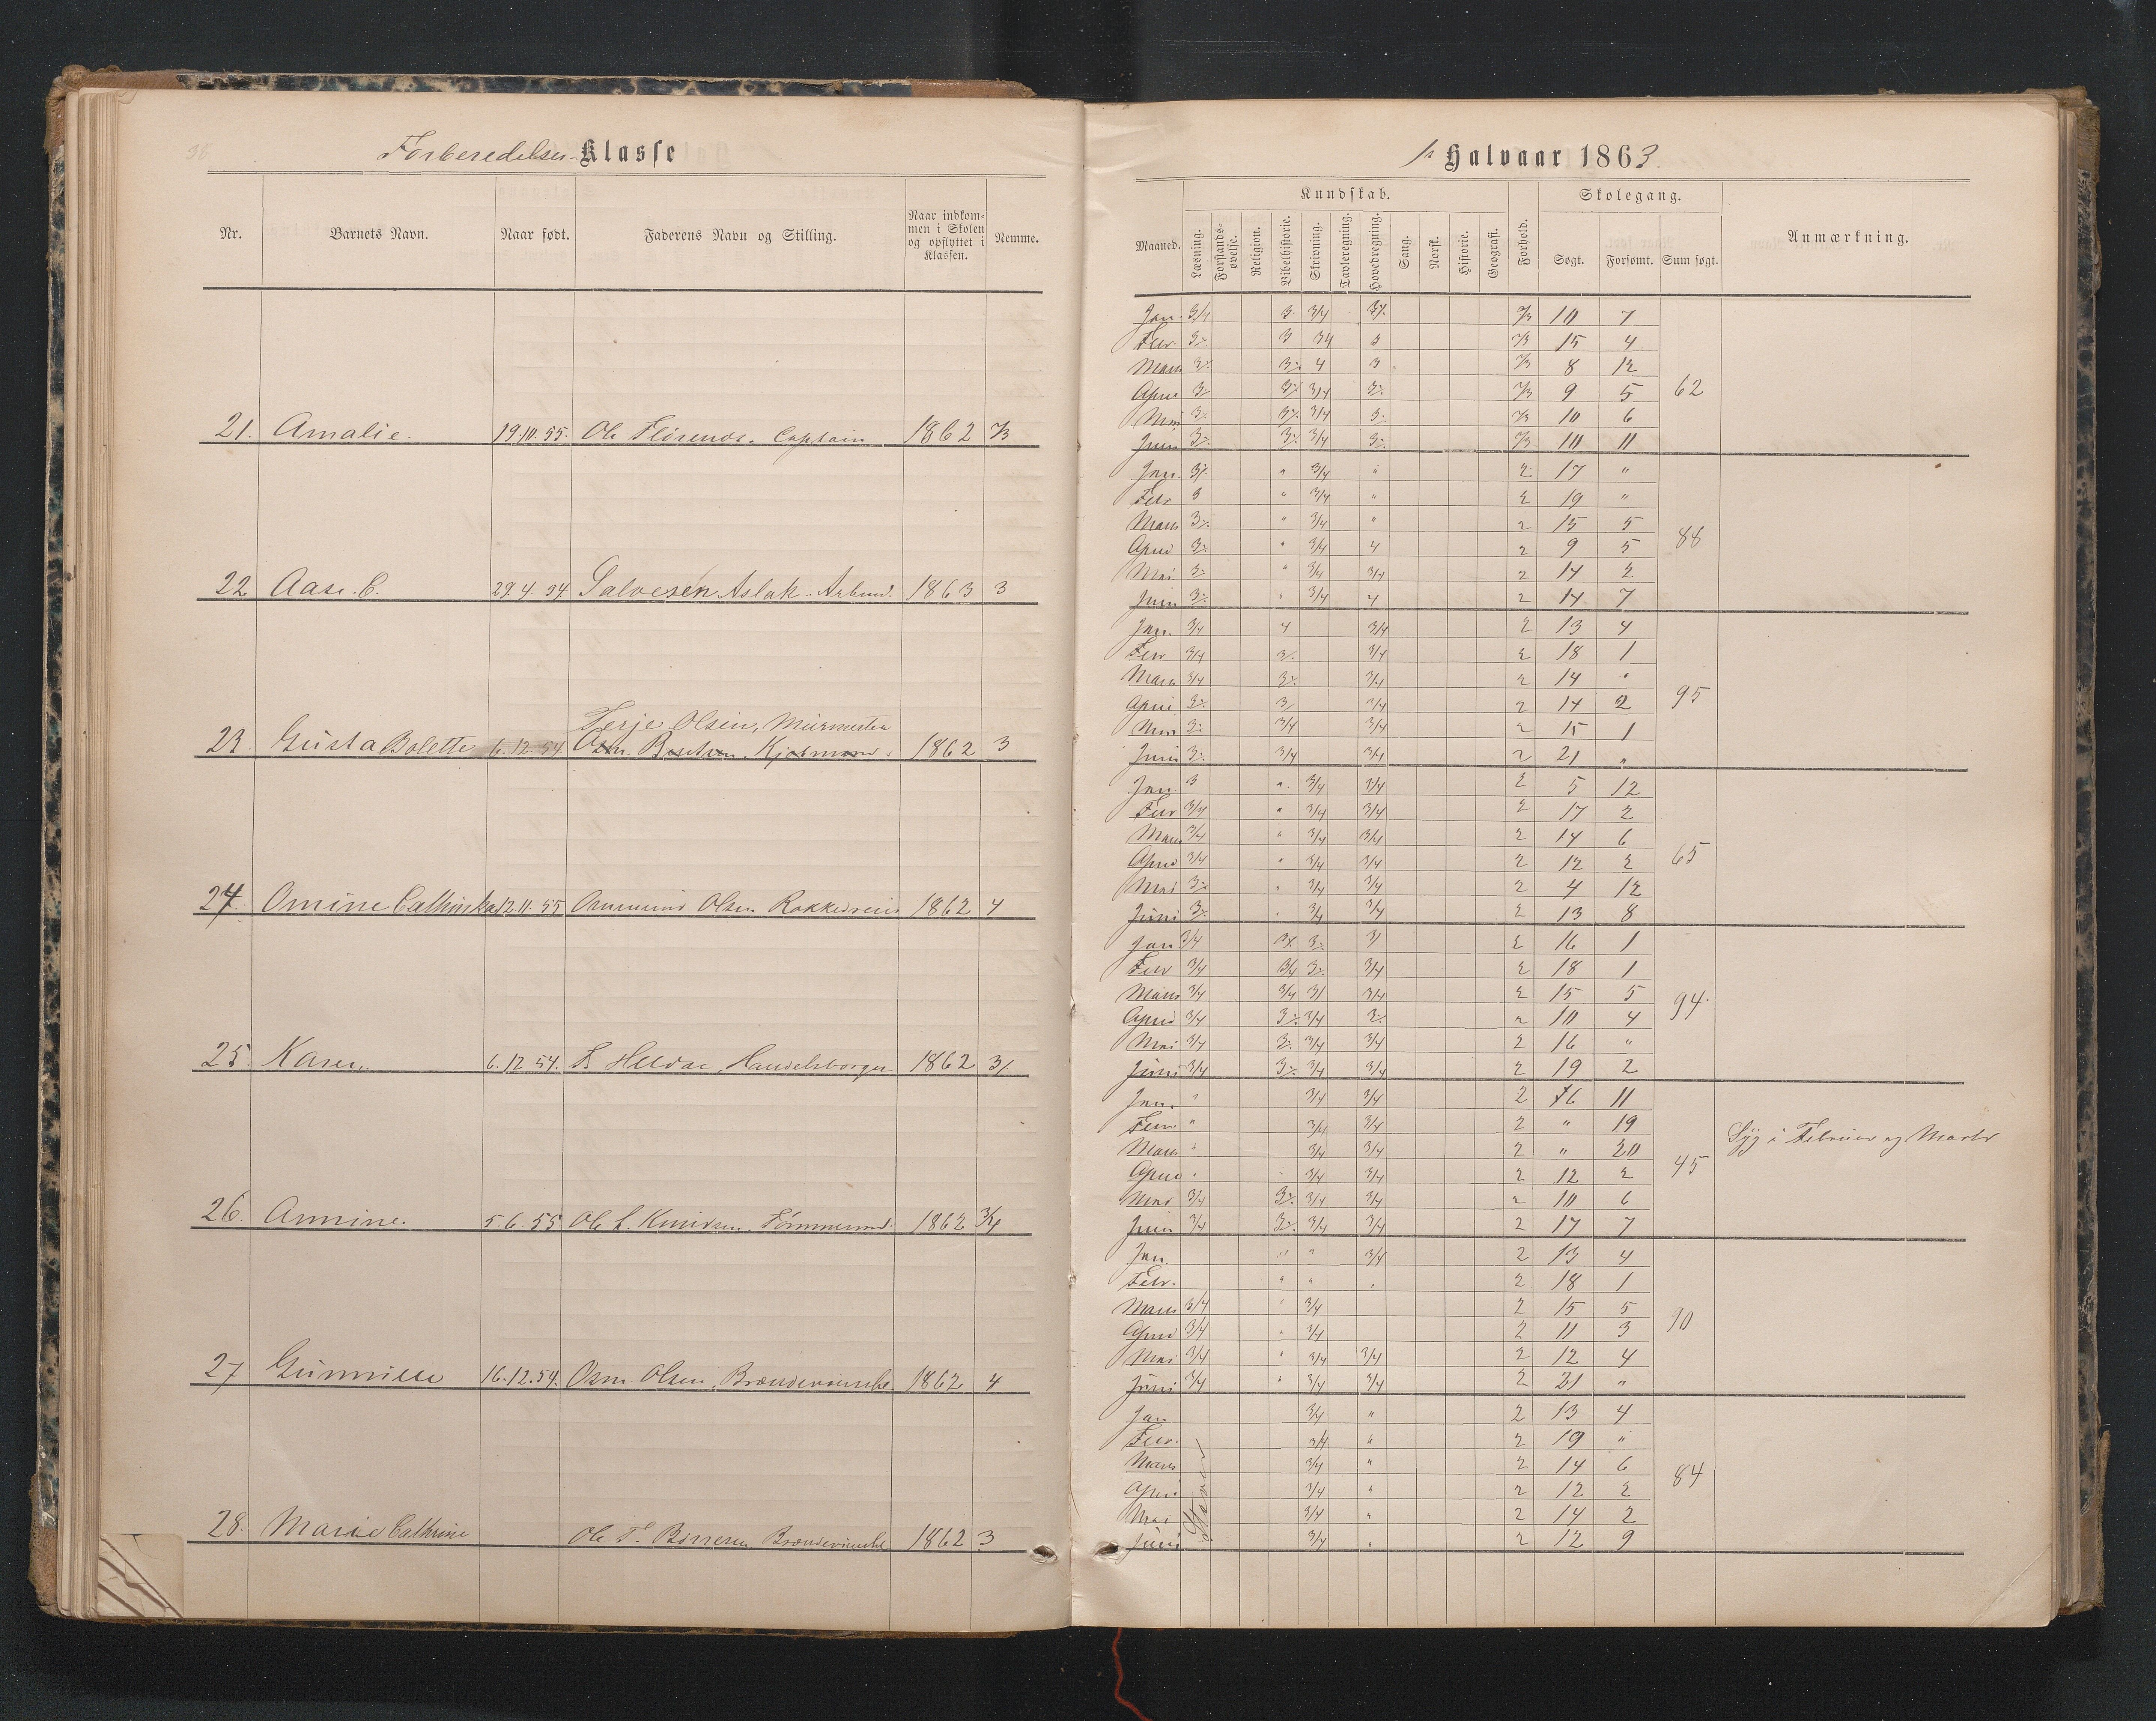 38
Forberedelses- Klasse
Nr. Barnets Navn. Naar født. Faderens Navn og Stilling. Naar indkommen i Skolen og opflyttet i Klassen. Nemme.
21. Amalie. 19.10.55. Ole Florends. Captain 1862 2/3
22 Aase. C. 29.4.54. Salvesen Aslak. Arbmd. 1863 3
Terje Olsen, Muurmester
23. Gusta Bolette 6.12.54 1862 3
24. Omine Cathinka 12.11.55 Osmund Olsen 1862 4
25. Karen. 6.12.54. Handelsborger 1862 3/
26. Annine. 5.6.55 Ole 1862 3/4
27 Gunnille 16.12.54. Osm. Olsen, 1862 4
28. Marie Cathrine Ole T. 1862 3
1ste Halvaar 1863.
Kundskab. Skolegang.
Maaned. Læsning. Forstandsøvelse. Religion. Bibelhistorie. Skrivning. Tavleregning. Hovedregning. Sang. Norsk. Historie. Geografi. Forhold. Søgt. Forsømt. Sum søgt. Anmærkning.
Jan. 3/4 3 3/4 3% 2/3 10 7
Febr. 3% 3 3/4 3 2/3 15 4
Marts 3% 3% 4 3 2/3 8 12
April 3% 3% 3/4 3% 2/3 9 5 62
Mai 3% 3% 3/4 3% 2/3 10 6
Juni 3% 3% 3/4 3% 2/3 10 11
Jan. 3% " 3/4 " 2 17 "
Febr 3 " 3/4 " 2 19 "
Marts 3% " 3/4 " 2 15 5
April 3% " 3/4 4 2 9 5 88
Mai 3% " 3/4 3/4 2 14 2
Juni 3% " 3/4 4 2 14 7
Jan. 3/4 4 3/4 2 13 4
Febr 3/4 3% 3/4 2 18 1
Marts 3/4 3% 3/4 2 14 "
April 3% 3/ 3/4 2 14 2 95
Mai 3% 3/4 3/4 2 15 1
Juni 3% 3/4 3/4 2 21 "
Jan. 3 " 3/4 3/4 2 5 12
Febr 3/4 " 3/4 3/4 2 17 2
Marts 3/4 " 3/4 3/4 2 14 6
April 3/4 " 3/4 3/4 2 12 2 65
Mai 3% " 3/4 3/4 2 4 12
Juni 3% " 3/4 3/4 2 13 8
Jan 3/4 3% 3% 3/ 2 16 1
Febr 3/4 3/4 3% 3/4 2 18 1
Marts 3/4 3/4 3/ 3/4 2 15 5 94.
April 3/4 3% 3/4 3% 2 10 4
Mai 3/4 3% 3/4 3/4 2 16 "
Juni 3/4 3% 3/4 3/4 2 19 2
Jan. " 3/4 3/4 2 6 11
Febr " 3/4 3/4 2 " 19 Syg i Februar og Marts
Marts " 3/4 3/4 2 " 20
April " 3/4 3/4 2 12 2 45
Mai 3/4 3% 3/4 3/4 2 10 6
Juni 3/4 3% 3/4 3/4 2 17 7
Jan. " " 3/4 2 13 4
Febr. " " " 2 18 1
Marts 3/4 " 3/4 2 15 5
April 3/4 " 3/4 2 11 3 90
Mai 3/4 " 3/4 3/4 2 12 4
Juni 3/4 " 3/4 3/4 2 21 "
Jan 3/4 " 2 13 4
Febr. 3/4 " 2 19 "
Marts 3/4 " 2 14 6
April 3/4 " 2 12 2 84
Mai 3/4 " 2 14 2
Juni 3/4 " 2 12 9
Staver